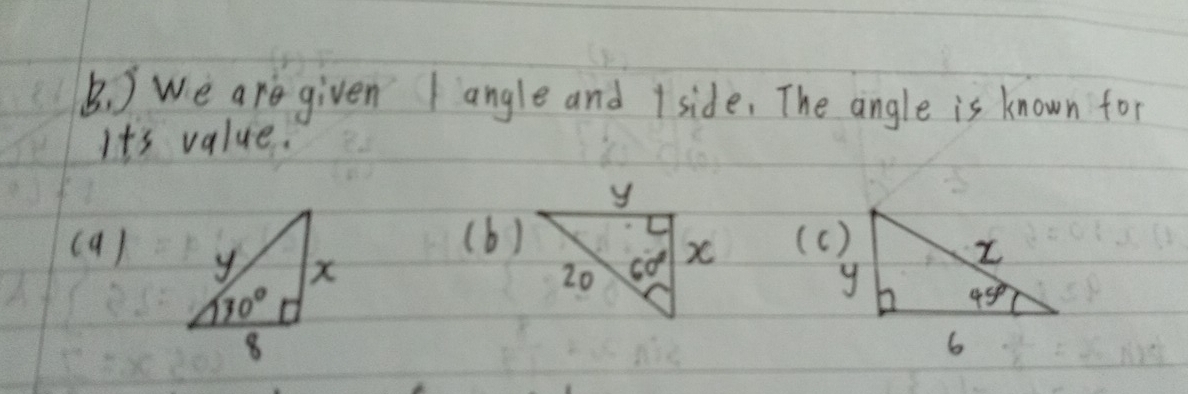 B.) We are given 1 angle and 1 side. The angle is known for
it's value.
(a) y 30° x 8
(b) y 20 60° x
(c) y x 45° 6